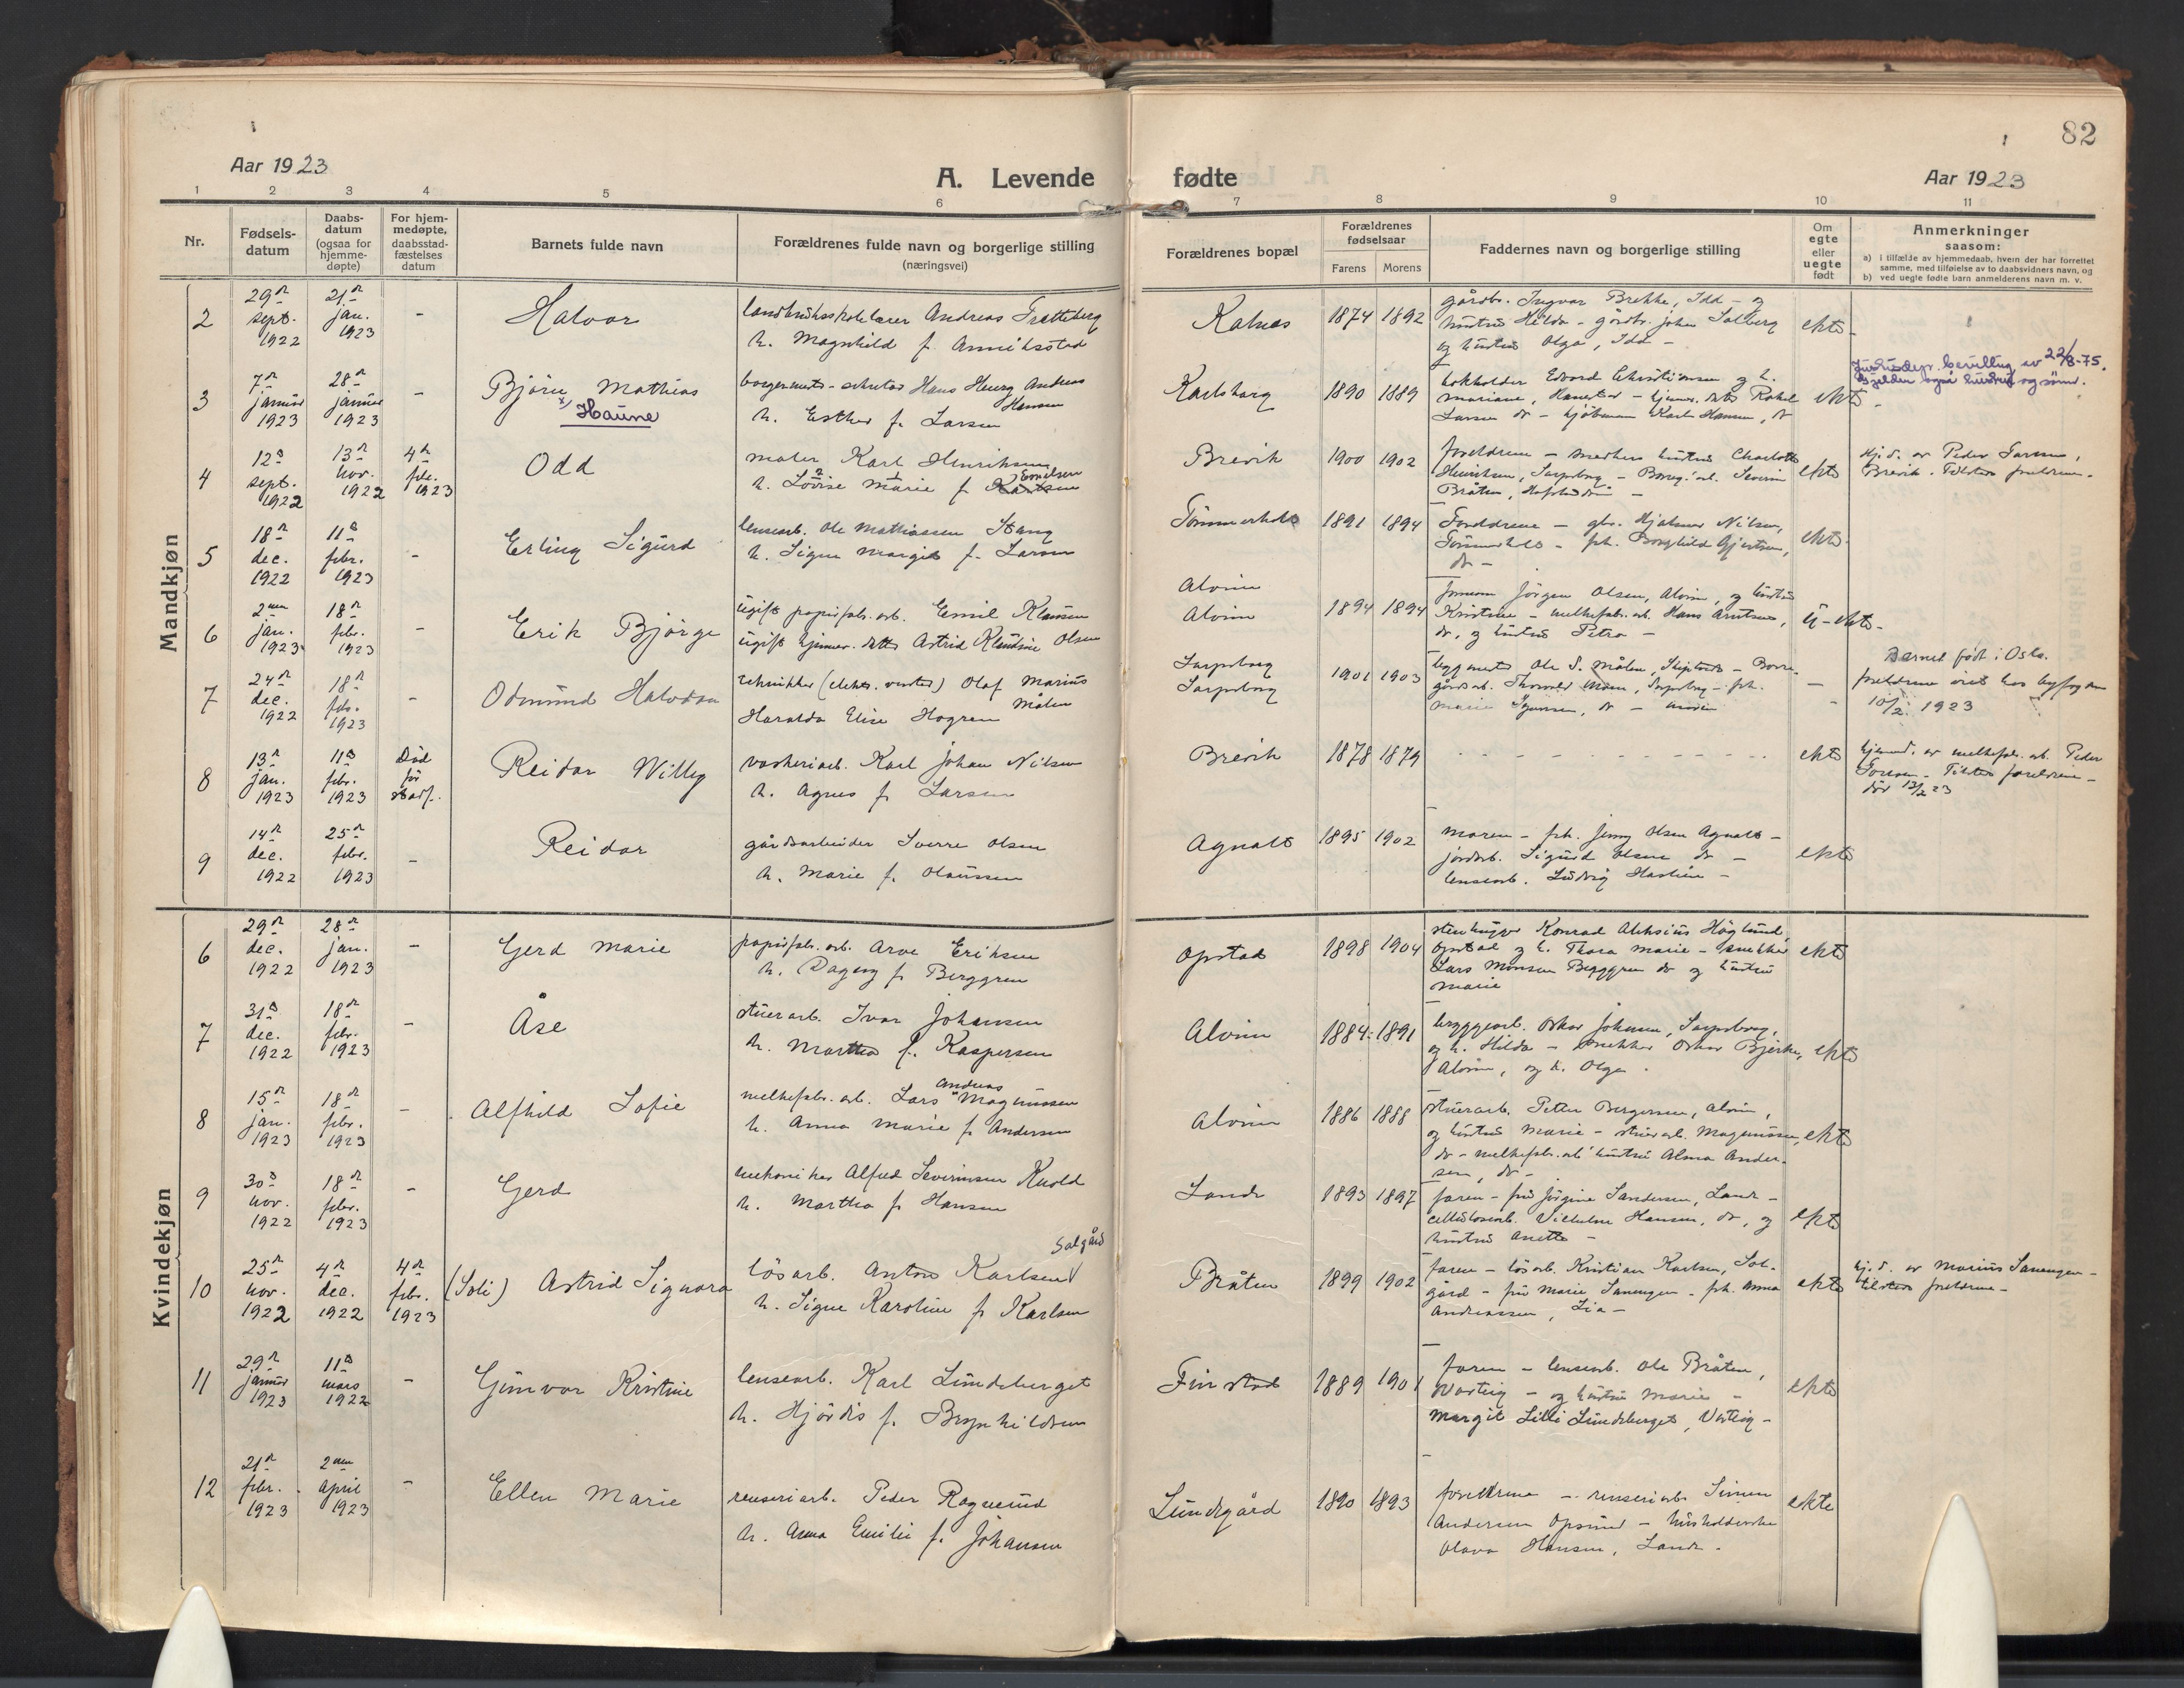 82
Aar 1923
A. Levende fødte
Aar 1923
1 2 3 4 5 6 7 8 9 10 11
Nr.
Fødsels-
datum
Daabs-
datum
(ogsaa for
hjemme-
døpte)
For hjem-
medøpte,
daabsstad-
fæstelses
datum
Barnets fulde navn
Forældrenes fulde navn og borgerlige stilling
(næringsvei)
Forældrenes bopæl
Forældrenes
fødselsaar
Farens Morens
Faddernes navn og borgerlige stilling
Om
egte
eller
uegte
født
Anmerkninger
saasom:
a) i tilfælde av hjemmedaab, hvem der har forrettet
samme, med tilføielse av to daabsvidners navn, og
b) ved uegte fødte barn anmelderens navn m. v.
Mandkjøn
2
29de sept. 1922
21de jan. 1923
-
Halvor
landbruksskolelærer Andreas Tratteberg
h. Magnhild f.
Kalnes
1874 1892
gårdbr. Ingvar Brekke, Idd - og
hustru Hilda - gårdbr. Johan Solberg
og hustru Olga, Idd -
ekte -
3
7de januar 1923
28de januar 1923
-
Bjørn Mathias
x) Haune
Hans Henry Andreas
Hansen
h. Esther f. Larsen
Karlsborg
1890 1889
bokholder Edvard Christiansen og h.
Mariane, - hjemv. datt. Rakel
Larsen do - kjøbmann Karl Hansen, do
ekte -
Justisdep. bevilling av 22/8-75.
Gjelder også hustru og sønn.
4
12te sept. 1922
13de nov. 1922
4de febr. 1923
Odd
maler Karl Henriksen
h. Lovise Marie f. Karlsen
Brevik
1900 1902
foreldrene - hustru Charlotte
Henriksen, Sarpsborg - Severin
Bråten, Hafslundsøen -
ekte
Hj.d. av Peder
Brevik. Tilstede foreldrene -
5
18de dec. 1922
11te febr. 1923
-
Erling Sigurd
lensearb. Ole Mathiassen Stang
h. Signe Margit f. Larsen
Tømmerholt
1891 1894
Foreldrene - gbr. Hjalmar Nilsen,
Tømmerholt - frk. Borghild Gjertsen,
do -
ekte -
6
2den jan. 1923
18de febr. 1923
-
Erik Bjørge
ugift papirfabr. arb. Emil Klausen
ugift hjemv. datter Astrid Klaudine Olsen
Alvim
Alvim
1894 1894
formann Jørgen Olsen, Alvim, og hustru
Kristine - melkefabr. arb. Hans Arntsen,
do, og hustru Petra -
u-ekte -
7
24de dec. 1922
18de febr. 1923
-
Odmund Halvdan
tekniker (elektr. verket) Olaf Marius
Målen
Haralda Elise Hagren
Sarpsborg
Sarpsborg
1901 1903
byggmester Ole S. Målen, Skiptvedt -
gårdsarb. Thorvald Moen, Sarpsborg - frk.
Marie do -
-
Barnet født i Oslo.
foreldrene viet hos byfogden
10/2. 1923
8
13de jan. 1923
11te febr. 1923
Død før stadf.
Reidar Willy
vaskeriarb. Karl Johan Nilsen
h. Agnes f. Larsen
Brevik
1878 1879
- - - - - - - - - -
ekte
hjemmed. av melkefabr. arb. Peder
Tilstede foreldrene -
død 13/2 23
9
14de dec. 1922
25de febr. 1923
-
Reidar
gårdsarbeider Sverre Olsen
h. Marie f. Olaussen
Agnalt
1895 1902
moren - frk. Jenny Olsen Agnalt -
jordarb. Sigurd Olsen do -
lensearb. Ludvig -
ekte
Kvindekjøn
6
29de dec. 1922
28de jan. 1923
-
Gerd Marie
papirfabr. arb. Arve Eriksen
h. Dagny f. Berggren
Opstad
1898 1904
stenhugger Konrad Aleksius Höglund,
Opstad og h. Thora Marie - snekker
Lars Monsen Berggren do og hustru
Marie
ekte
7
31te dec. 1922
18de febr. 1923
-
Åse
stuerarb. Ivar Johansen
h. Martha f. Kaspersen
Alvim
1884 1891
bryggearb. Oskar Johnsen, Sarpsborg,
og h. Hilda - snekker Oskar Bjerke,
Alvim, og h. Olga.
ekte
8
15de jan. 1923
18de febr. 1923
-
Alfhild Sofie
melkefabr. arb. Lars Andreas Magnussen
h. Anna Marie f. Andersen
Alvim
1886 1888
stuerarb. Petter Bergersen, Alvim,
og hustru Marie - stuerarb. Magnussen,
do - melkefabr. arb. hustru Alma Ander-
sen, do -
ekte
9
30te nov. 1922
18de febr. 1923
-
Gerd
mekaniker Alfred Severinsen Kvold
h. Martha f. Hansen
Lande
1893 1897
faren - fru Jørgine Sandersen, Lande -
cellulosearb. Vilhelm Hansen, do, og
hustru Anette -
ekte
10
25de nov. 1922
4de dec. 1922
4de febr. 1923
(Soli) Astrid Signora
løsarb. Anton Karlsen Solgård
h. Signe Karoline f. Karlsen
Bråten
1899 1902
faren - løsarb. Kristian Karlsen, Sol-
gård - fru Marie Sanengen - frk. Anna
Andreassen, Lia -
ekte
hj.d. av Marius Sanengen -
tilstede foreldrene -
11
29de januar 1923
11te mars 1922
-
Gunvor Kristine
lensearb. Karl Lundeberget
h. Hjørdis f. Brynhildsen
Finstad
1889 1901
faren - lensearb. Ole Bråten,
Varteig - og hustru Marie -
Margit Lilli Lundeberget, Varteig -
ekte
12
21de febr. 1923
2den April 1923
-
Ellen Marie
renseriarb. Peder Rognerud
h. Anna Emilie f. Johansen
Lundgård
1890 1893
foreldrene - renseriarb. Simen
Andersen Opsund - husholderske
Olava Hansen, Lande -
ekte